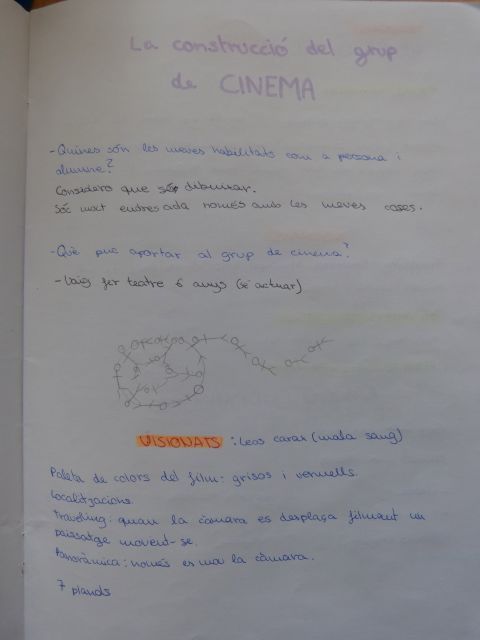 La construcció del grup
de CINEMA
- Quines són les meves habilitats com a persona i
alumne?
Considero que sé dibuixar.
Sóc molt endreçada només amb les meves coses.
- Què puc aportar al grup de cinema?
- Vaig fer teatre 6 anys (sé actuar)
VISIONATS : Leos carax (mala sang)
Paleta de colors del film: grisos i vermells.
Localitzacions.
Traveling: quan la càmara es desplaça filmant un
paisatge movent-se.
Panoràmica: només es mou la càmara.
7 planos